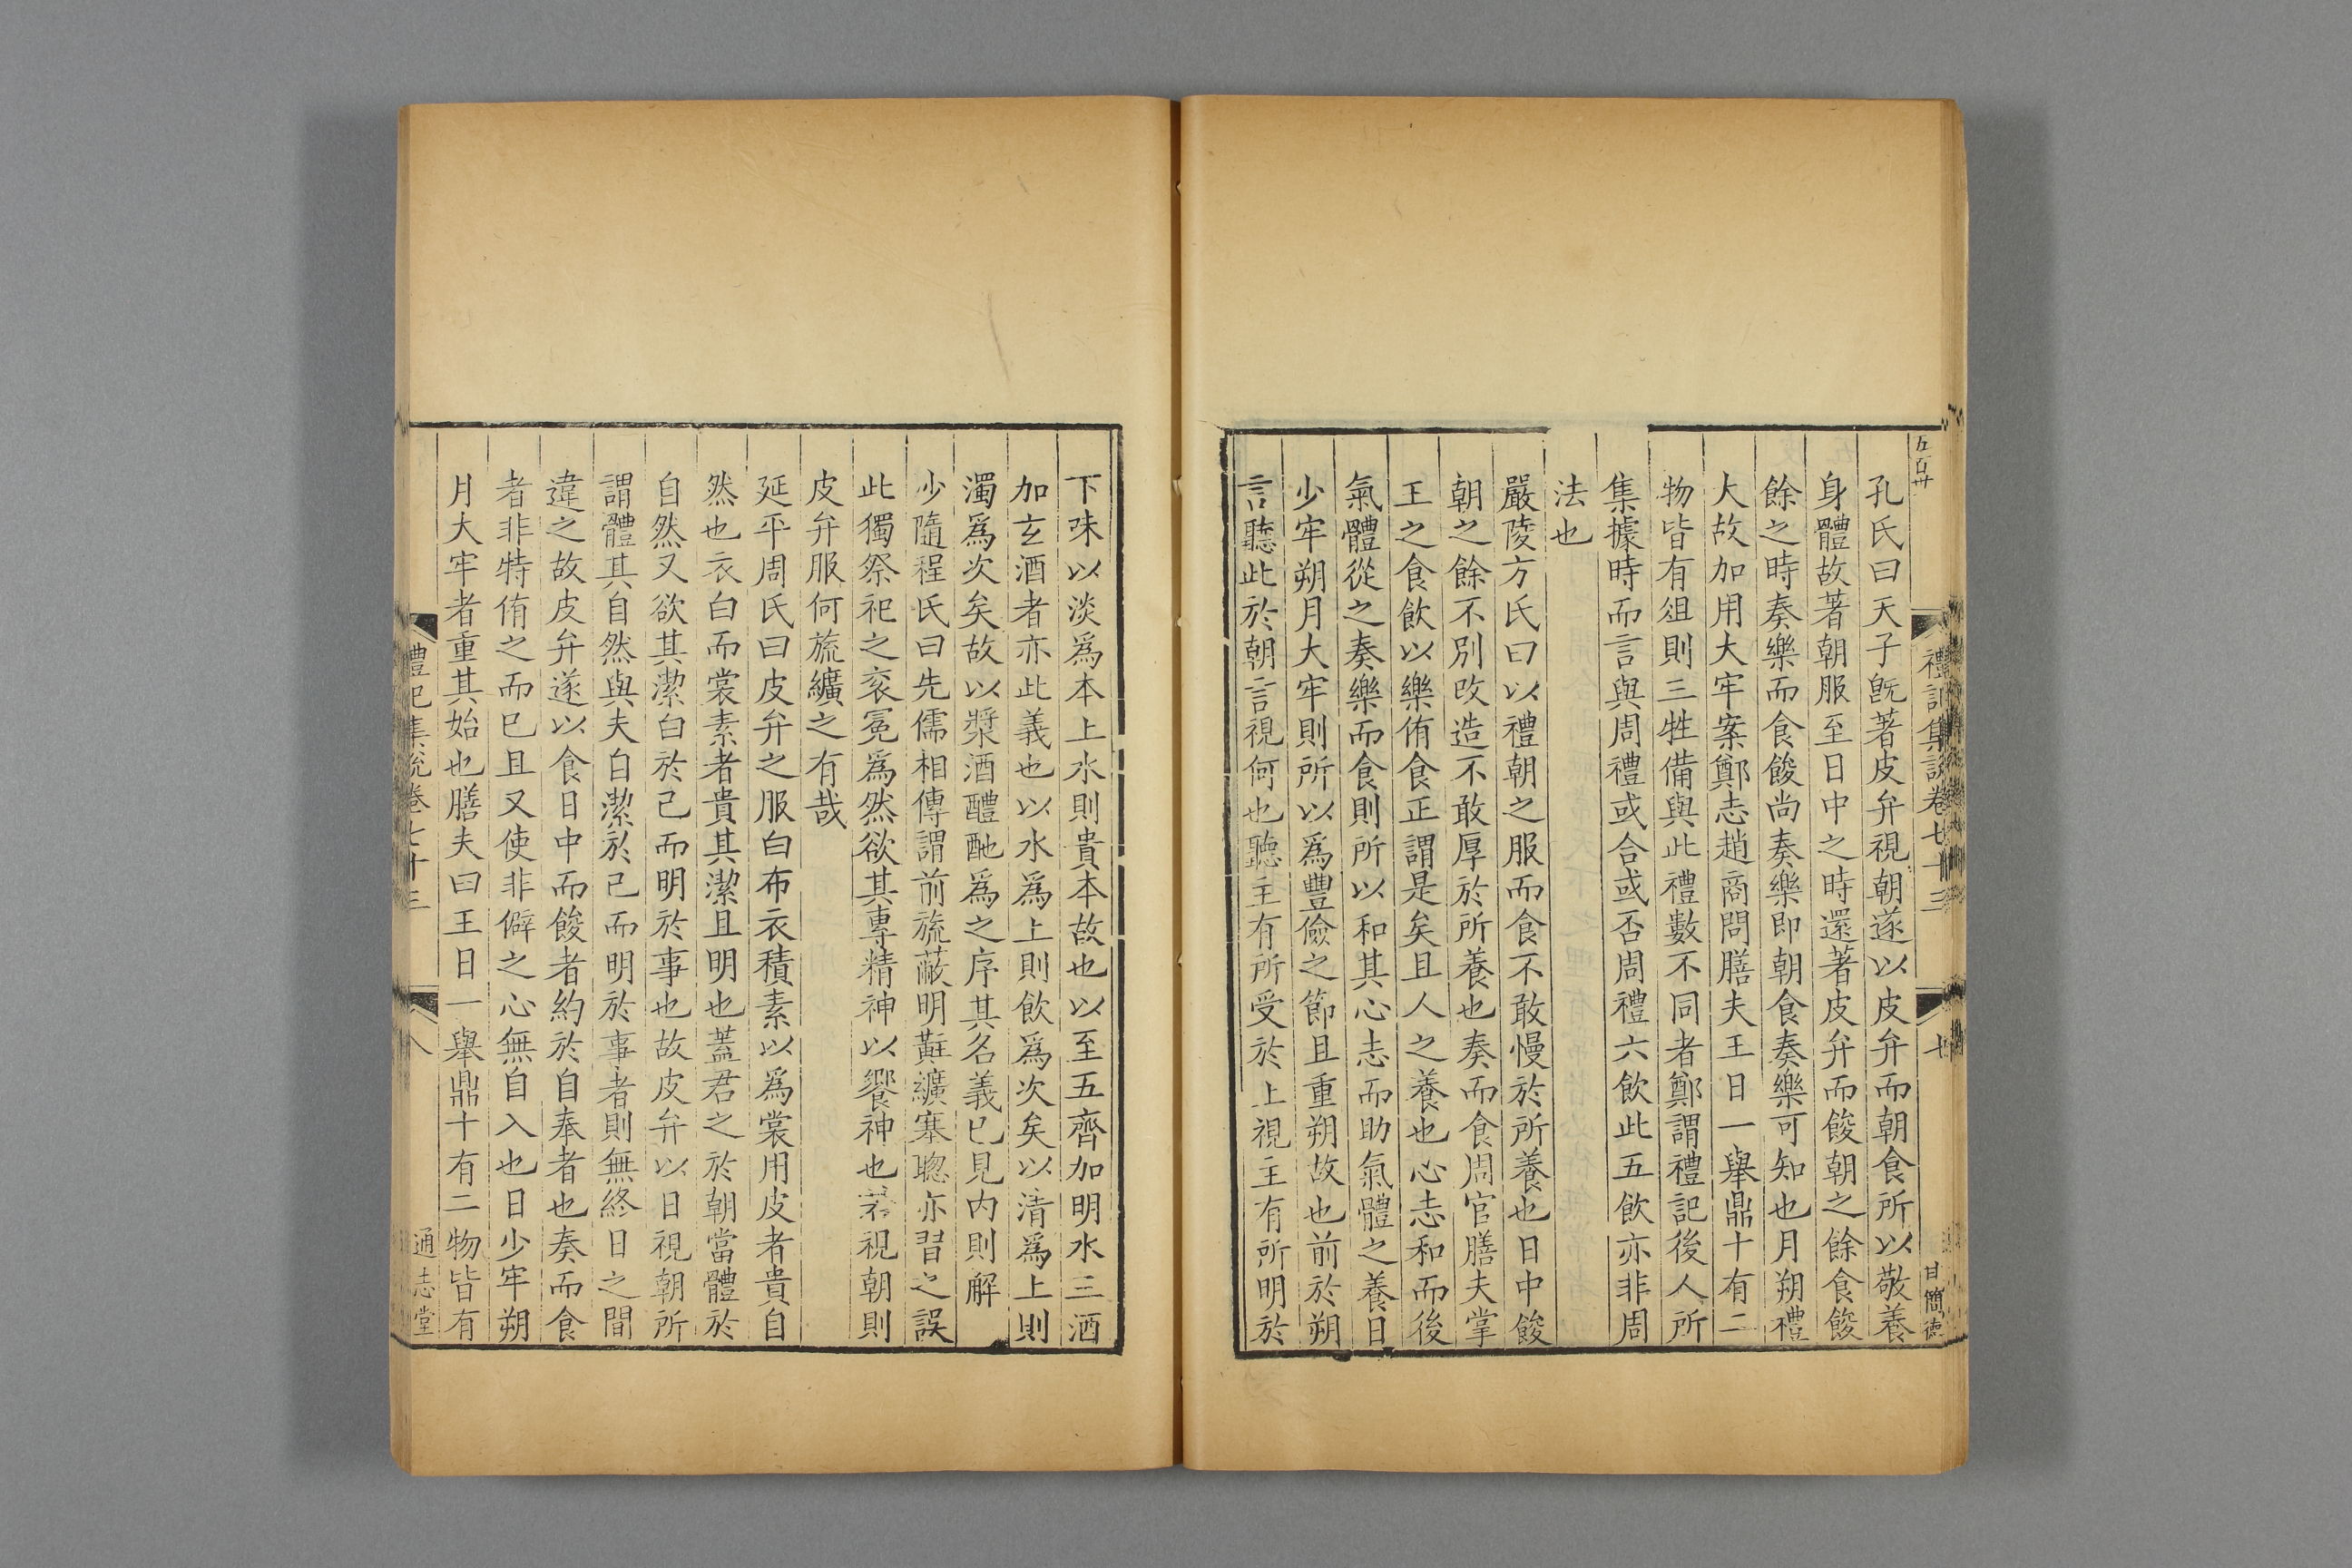 五百卅
禮記集說卷七十三
七
甘簡德
孔氏曰天子旣著皮弁視朝遂以皮弁而朝食所以敬養
身體故著朝服至日中之時還著皮弁而餕朝之餘食餕
餘之時奏樂而食餕尚奏樂即朝食奏樂可知也月朔禮
大故加用大牢案鄭志趙商問膳夫王日一舉鼎十有二
物皆有俎則三牲備與此禮數不同者鄭謂禮記後人所
集據時而言與周禮或合或否周禮六飲此五飲亦非周
法也
嚴陵方氏曰以禮朝之服而食不敢慢於所養也日中餕
朝之餘不別改造不敢厚於所養也奏而食周官膳夫掌
王之食飲以樂侑食正謂是矣且人之養也心志和而後
氣體從之奏樂而食則所以和其心志而助氣體之養日
少牢朔月大牢則所以爲豐儉之節且重朔故也前於朔
言聽此於朝言視何也聽主有所受於上視主有所明於
下味以淡爲本上水則貴本故也以至五齊加明水三酒
加玄酒者亦此義也以水爲上則飲爲次矣以清爲上則
濁爲次矣故以漿酒醴酏爲之序其名義已見内則解
少隨程氏曰先儒相傳謂前旒蔽明黈纊塞聰亦習之誤
此獨祭祀之衮冕爲然欲其專精神以饗神也若視朝則
皮弁服何旒纊之有哉
延平周氏曰皮弁之服白布衣積素以爲裳用皮者貴自
然也衣白而裳素者貴其潔且明也蓋君之於朝當體於
自然又欲其潔白於己而明於事也故皮弁以日視朝所
謂體其自然與夫白潔於己而明於事者則無終日之間
違之故皮弁遂以食日中而餕者約於自奉者也奏而食
者非特侑之而已且又使非僻之心無自入也日少牢朔
月大牢者重其始也膳夫曰王日一舉鼎十有二物皆有
禮記集說卷七十三
八
通志堂